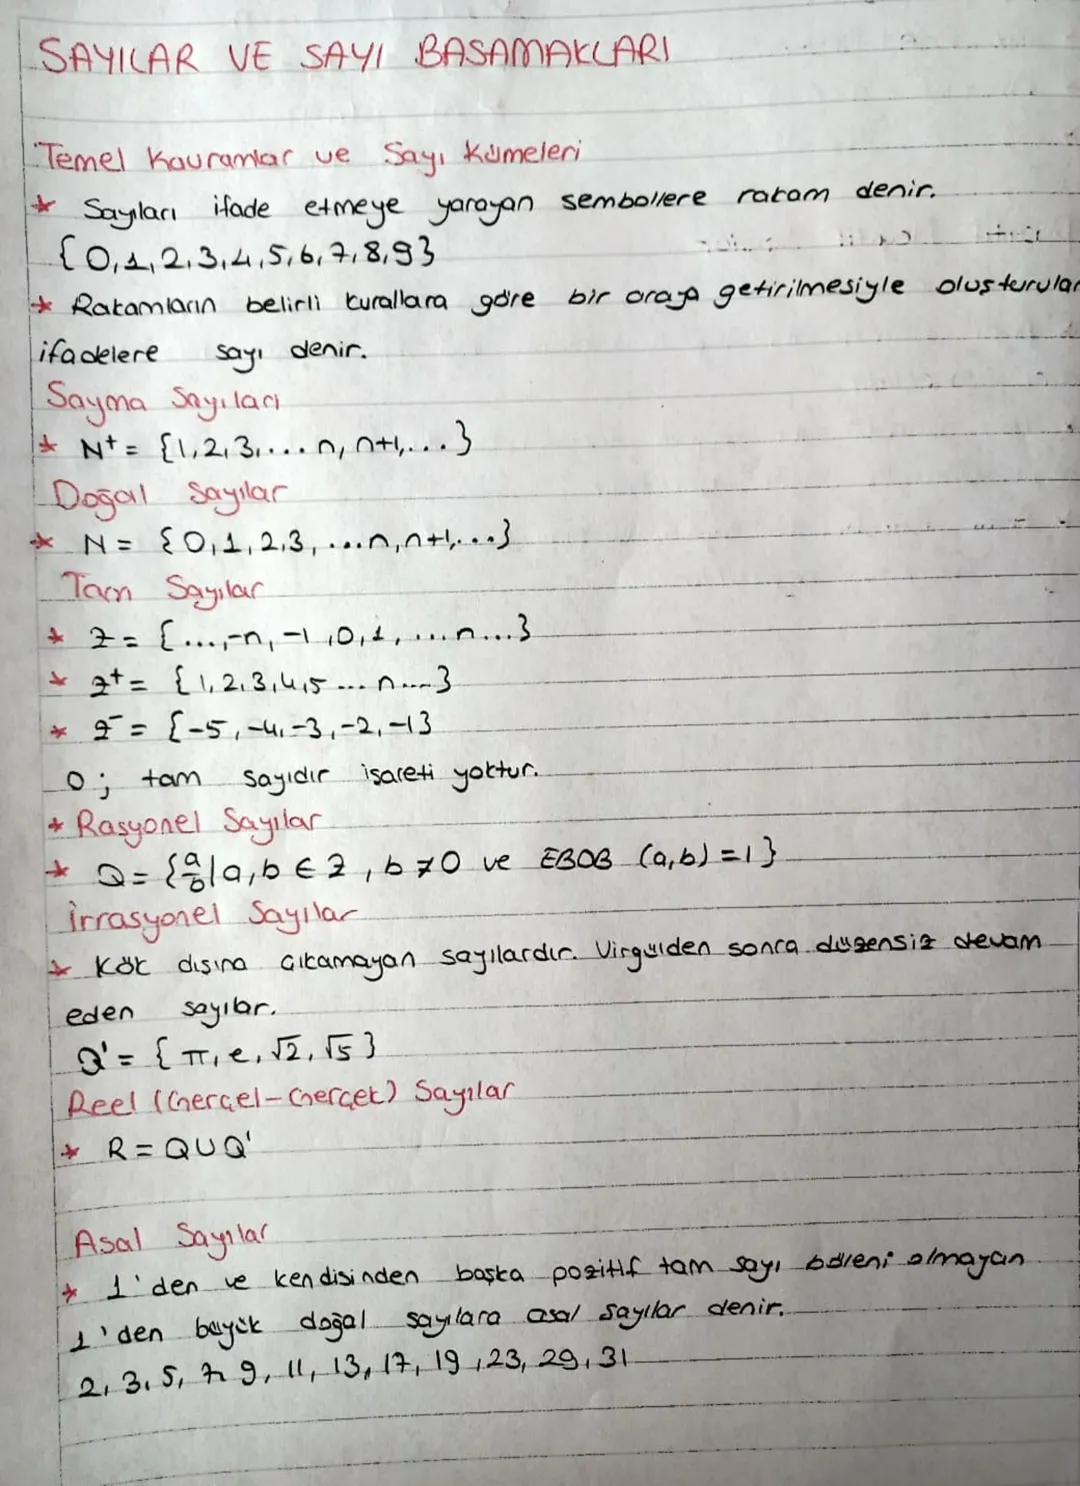 SAYILAR VE SAYI BASAMAKLARI
Temel Kavramlar ve Sayı Kümeleri
* Sayıları ifade etmeye yarayan sembollere rakam denir.
{0,1,2,3,4,5,6,7,8,9}
* Rakamların belirli kurallara göre bir araya getirilmesiyle oluşturulan
ifadelere sayı denir.
Sayma Sayıları
* N⁺ = {1,2,3,... n, n+1,...}
Doğal Sayılar
* N = {0,1,2,3, ...n,n+1,...}
Tam Sayılar
* Z = {...,-n,-1,0,1, ...n...}
* Z⁺ = {1,2,3,4,5 ... n ...}
* Z⁻ = {-5,-4,-3,-2,-1}
0; tam sayıdır işareti yoktur.
* Rasyonel Sayılar
* Q = {a/b | a,b ∈ Z, b ≠ 0 ve EBOB (a,b) = 1}
İrrasyonel Sayılar
* Kök dışına çıkamayan sayılardır. Virgülden sonra düzensiz devam
eden sayılar.
Q' = {π, e, √2, √5}
Reel (Gerçel-Gerçek) Sayılar
* R = QUQ'
Asal Sayılar
* 1'den ve kendisinden başka pozitif tam sayı böleni olmayan
1'den büyük doğal sayılara asal sayılar denir.
2, 3, 5, 7, 9, 11, 13, 17, 19, 23, 29, 31